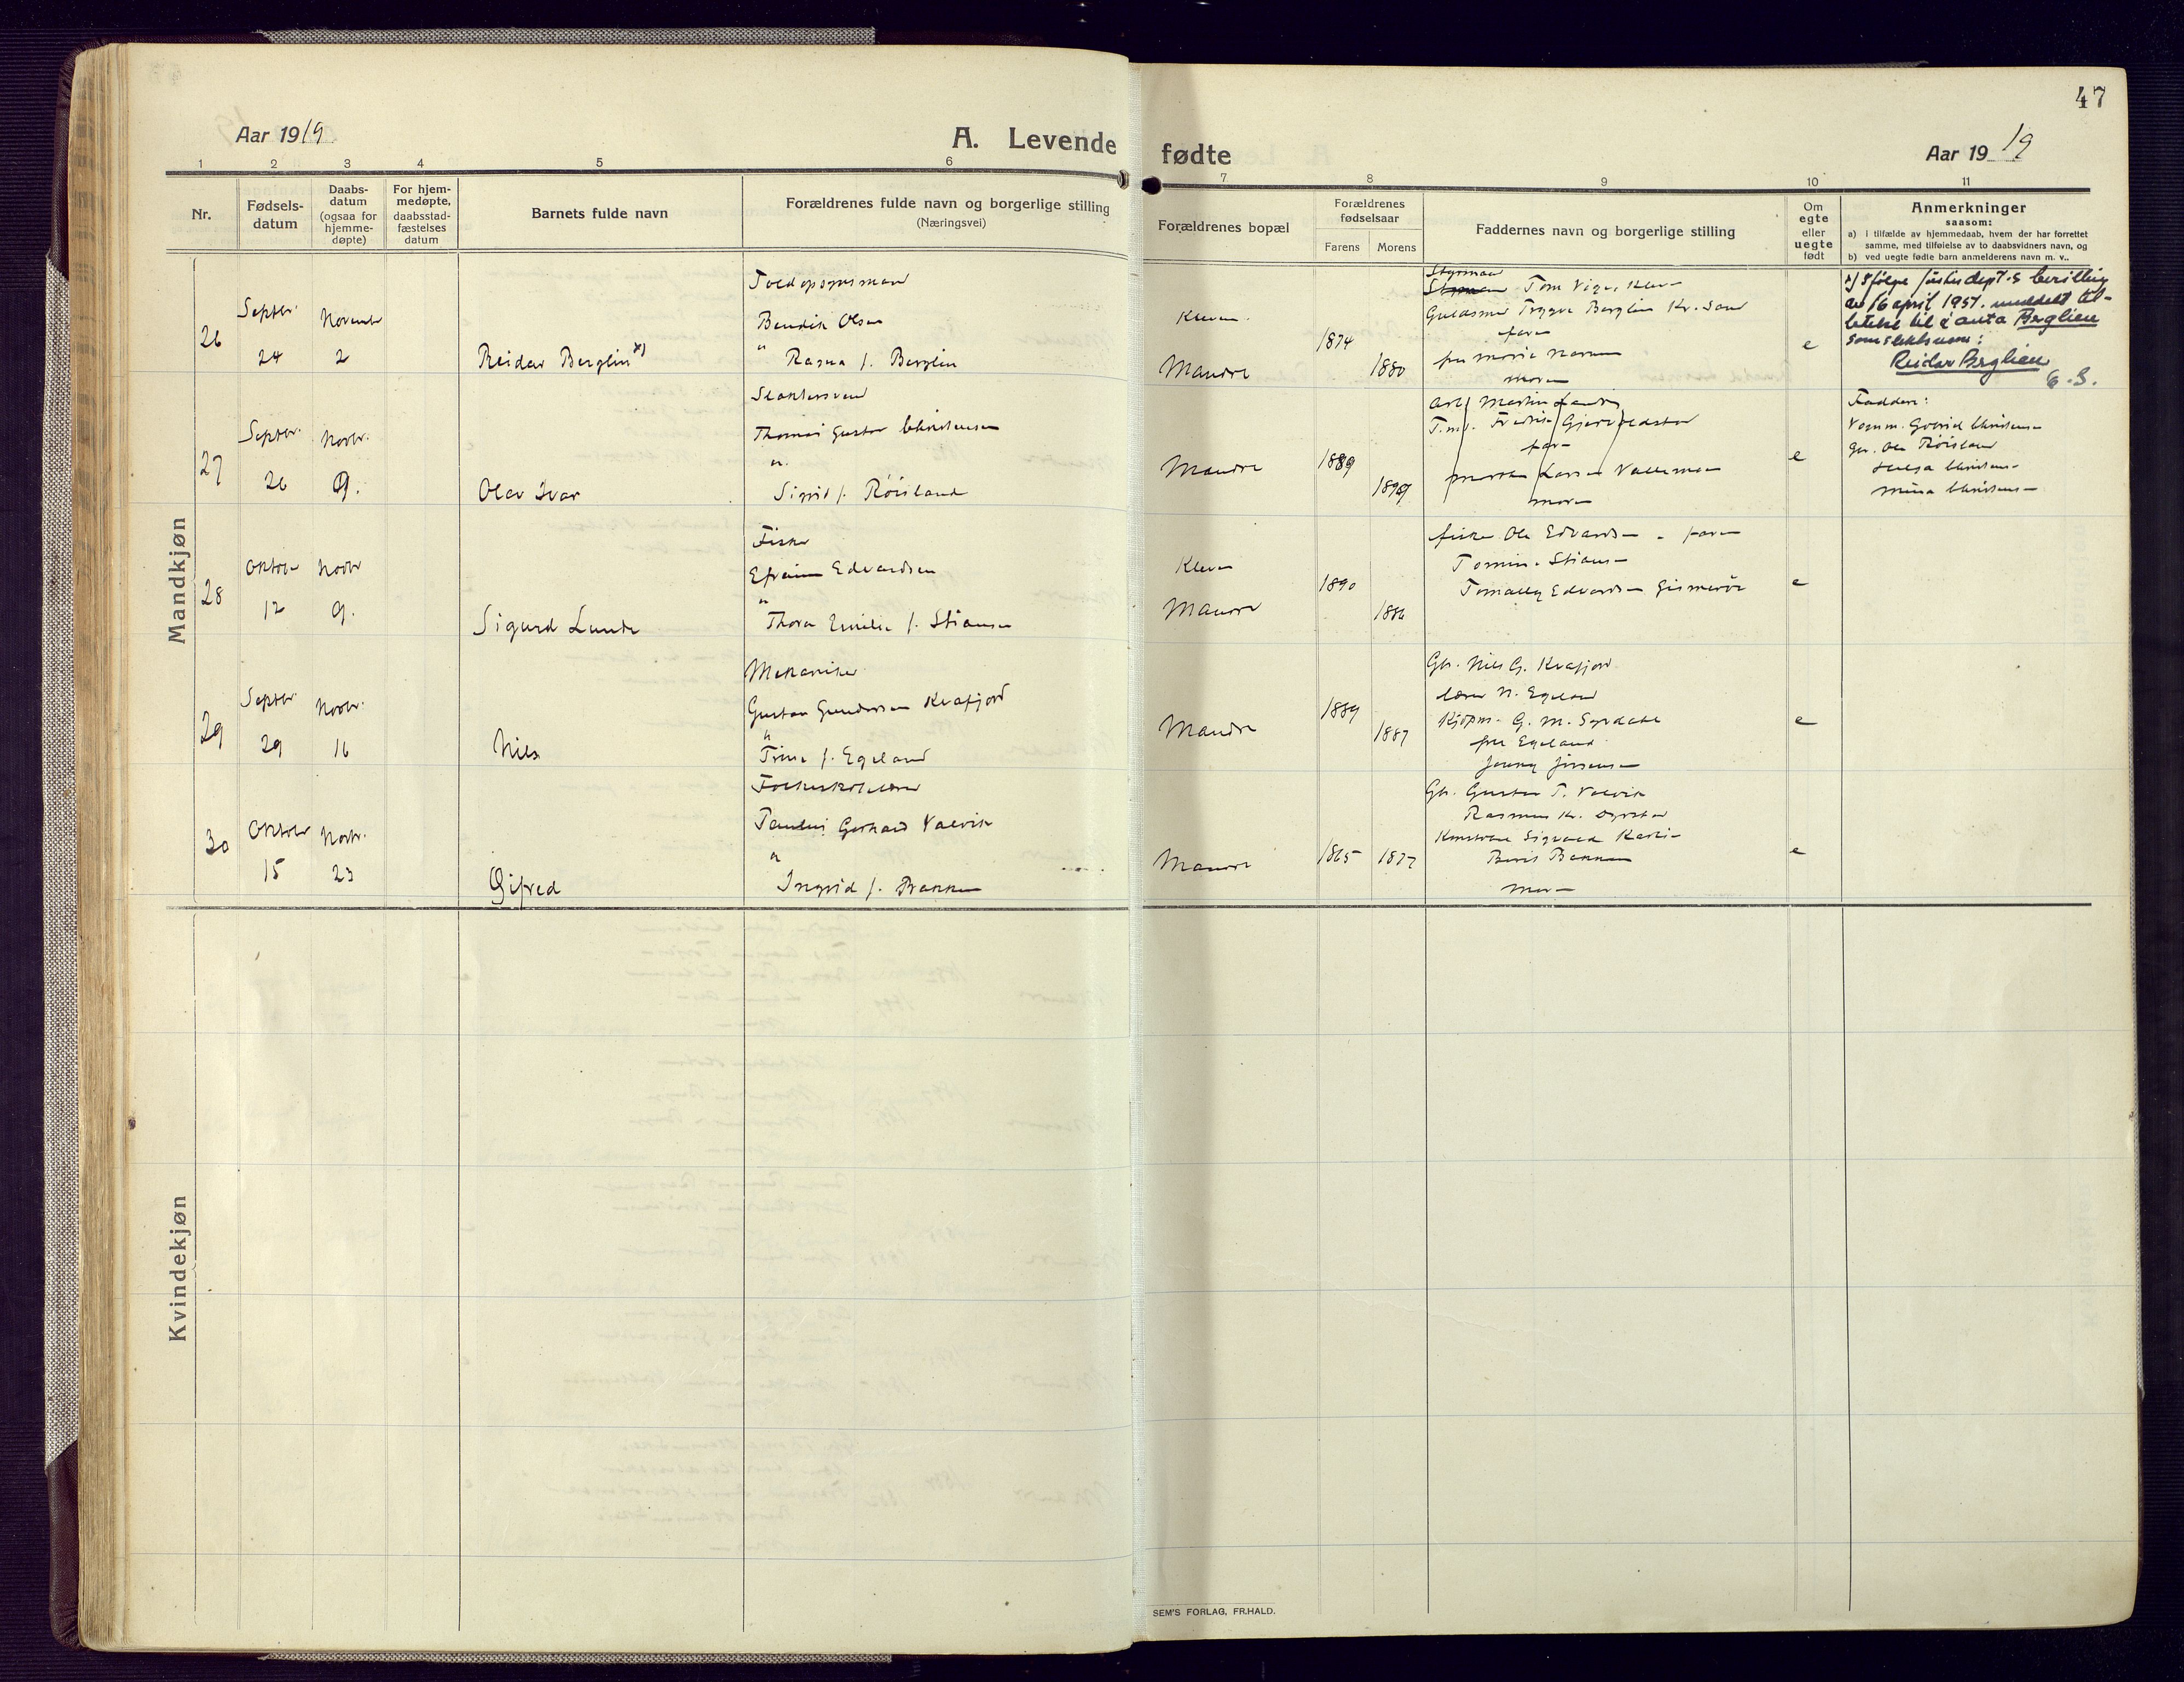 47
Aar 1919
A. Levende fødte
Aar 1919
1 2 3 4 5 6 7 8 9 10 11
Nr.
Fødsels-
datum
Daabs-
datum
(ogsaa for
hjemme-
døpte)
For hjem-
medøpte,
daabsstad-
fæstelses
datum
Barnets fulde navn
Forældrenes fulde navn og borgerlige stilling
(Næringsvei)
Forældrenes bopæl
Forældrenes
fødselsaar
Farens Morens
Faddernes navn og borgerlige stilling
Om
egte
eller
uegte
født
Anmerkninger
saasom:
a) i tilfælde av hjemmedaab, hvem der har forrettet
samme, med tilføielse av to daabsvidners navn, og
b) ved uegte fødte barn anmelderens navn m. v..
Mandkjøn
26
Septbr.
24
November
2
Reidar Berglin x)
Toldopsynsmand
Bendik Olsen
"
Rasna f. Berglin
Kleven
Mandal
1874
1880
Styrmand
Tom Vige, Kleven
Guldsmed Trygve Berglin Kr.sand
faren
fru Marie
moren
e
x) Ifølge justisdept.s bevilling
av 16 april 1957. meddelt til-
latelse til å anta Berglien
som slektsnavn:
Reidar Berglien
27
Septbr.
26
Novbr.
9.
Olav Ivar
Thomas Gustav Christensen
"
Sigrid f. Røisland
Mandal
1889
faren
moren
e
Faddere:
Christensen
Gb. Ole Røisland
Christensen
Mina Christensen
28
Oktober
12
Novbr
9.
Sigurd Lunde
Fisker
Efraim Edvardsen
"
Thora Emilie f. Stiansen
Kleven
Mandal
1890
1886
fisker Ole Edvardsen - faren
Stiansen
Edvardsen Gismerøe
e
29
Septbr.
29
Novbr.
16
Nils
Mekaniker
Gustav Gundersen Kvafjord
"
Trine f. Egeland
Mandal
1889
1887
Gb. Nils G. Kvafjord
lærer N. Egeland
Kjøpm. G. M. Syrdahl
fru Egeland
Jenny Jørgensen
e
30
Oktober
15
Novbr.
23
Gifred
Folkeskolelærer
Paulus Gerhard Valvik
"
Ingrid f. Bakken
Mandal
1865
1877
Gb. Gustav T. Valvik
Rasmus Kr.
Sigvald
Berit Bakken
moren
e
Kvindekjøn
SEM'S FORLAG, FR.HALD.